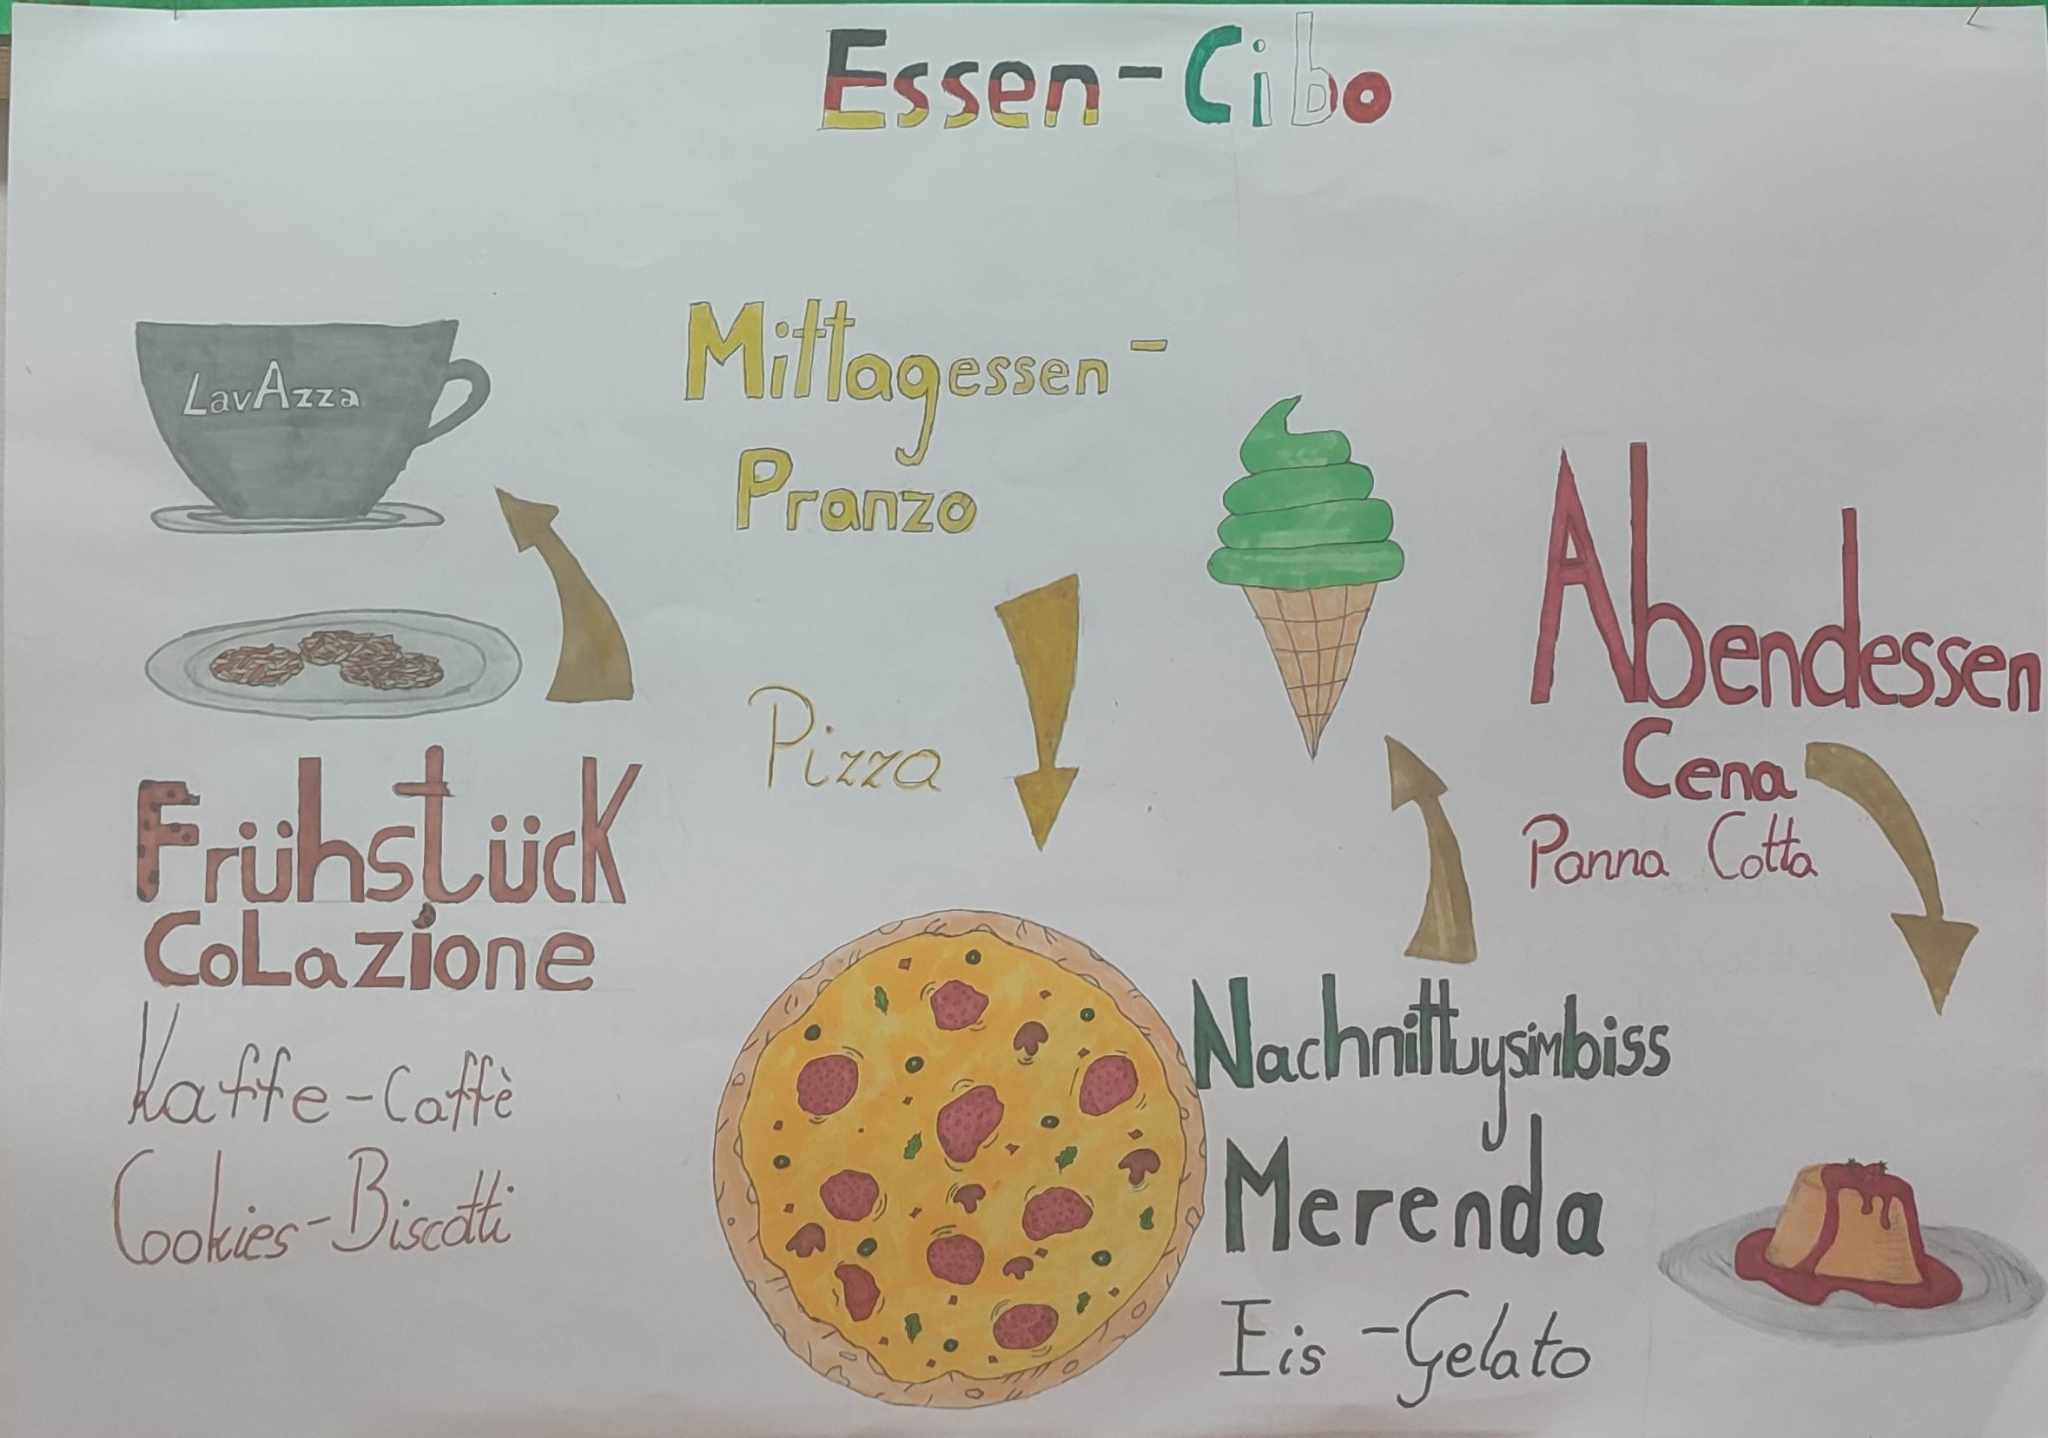 Essen-Cibo
LavAzza
Frühstück
CoLazione
Kaffe-Caffè
Cookies-Biscotti
Mittagessen-
Pranzo
Pizza
Nachnittuysimbiss
Merenda
Eis-Gelato
Abendessen
Cena
Panna Cotta